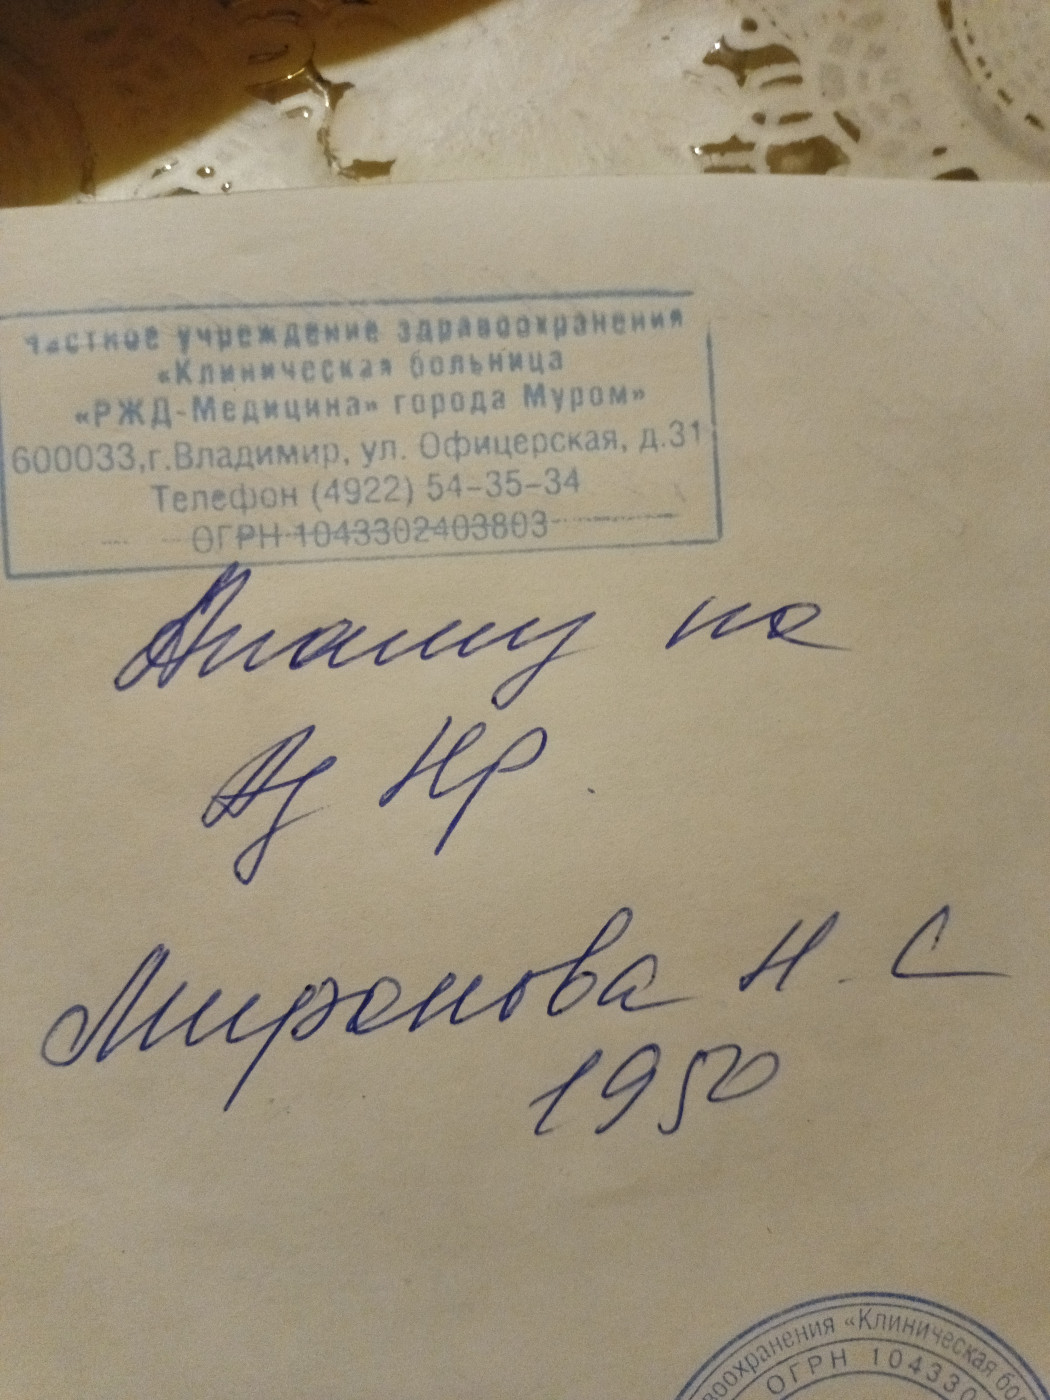 Частное учреждение здравоохранения
«Клиническая больница
«РЖД-Медицина» города Муром»
600033,г.Владимир, ул. Офицерская, д.31
Телефон (4922) 54-35-34
ОГРН 1043302403803
на
Нр
Миронова Н. С
1950
воохранения «Клиническая бол
ОГРН 10433